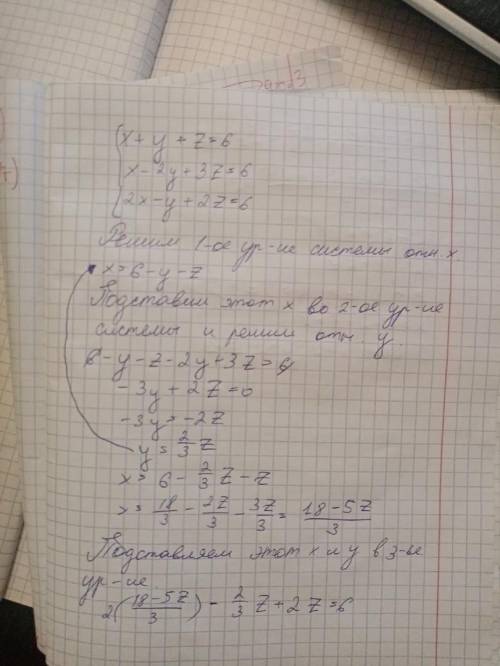 x + y + z = 6
x - 2y + 3z = 6
2x - y + 2z = 6
Решим 1-ое ур-ие системы отн. x.
x = 6 - y - z
Подставим этот x во 2-ое ур-ие
системы и решим отн. y.
6 - y - z - 2y + 3z = 6
-3y + 2z = 0
-3y = -2z
y = 2/3 z
x = 6 - 2/3 z - z
x = 18/3 - 2z/3 - 3z/3 = (18 - 5z)/3
Подставляем этот x и y в 3-ье
ур-ие.
2((18 - 5z)/3) - 2/3 z + 2z = 6